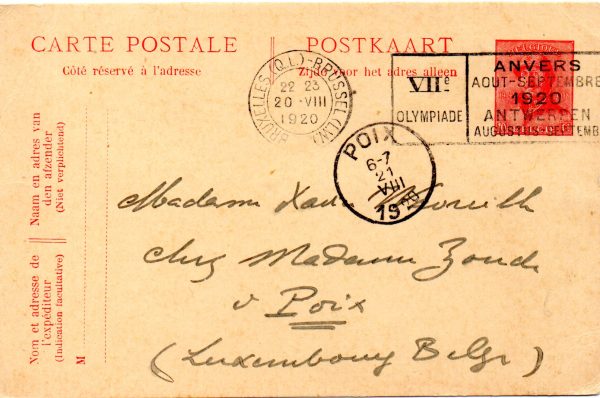 CARTE POSTALE
POSTKAART
Côté réservé à l'adresse
Zijde voor het adres alleen
BRUXELLES (Q.L.)-BRUSSEL (L.W.)
22 23
20-VIII
1920
VIIᵉ
OLYMPIADE
BELGIQUE
ANVERS
AOUT-SEPTEMBRE
1920
ANTWERPEN
AUGUSTUS-SEPTEMB
POIX
6-7
21
VIII
1920
Naam en adres van
den afzender
(Niet verplichtend)
Nom et adresse de
l'expéditeur
(Indication facultative)
M
Madame
chez Madame
à Poix
(Luxembourg Belge)